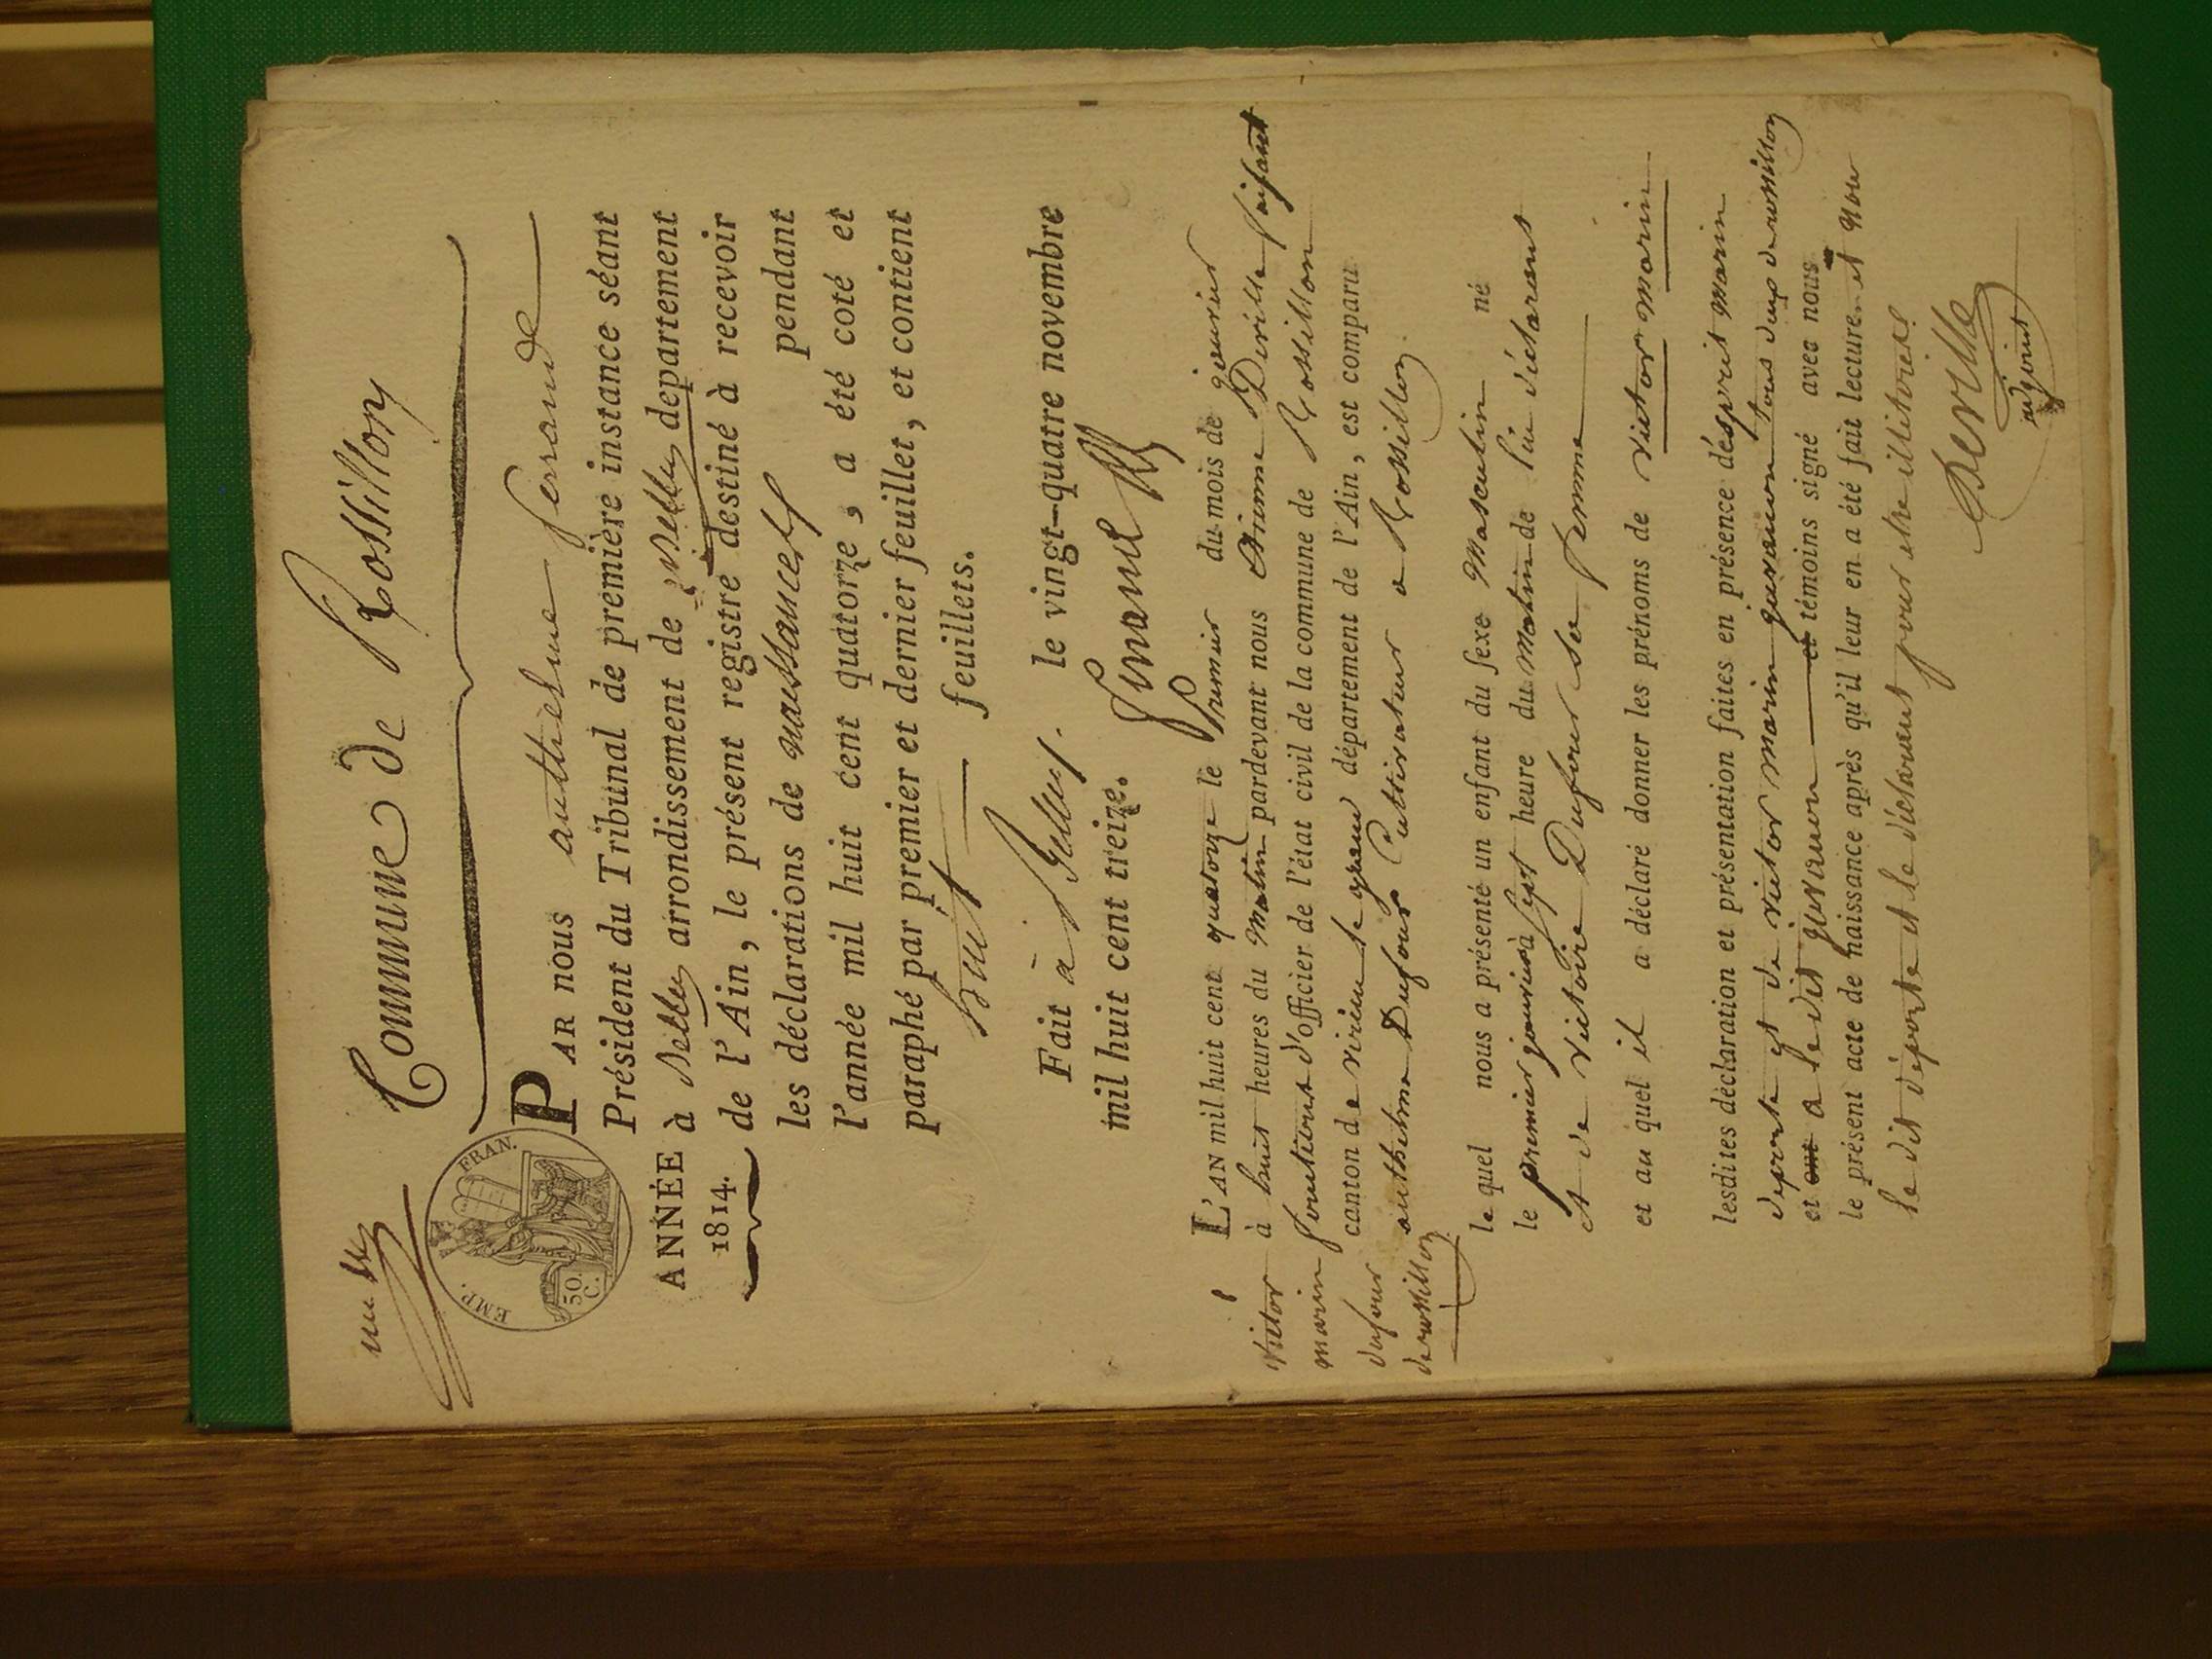 Commune de Rossillon
EMP. FRAN.
50. C.
ANNÉE
1814.
PAR nous anthelme ferrand
Président du Tribunal de première instance séant
à Belley arrondissement de Belley département
de l'Ain, le présent registre destiné à recevoir
les déclarations de naissances pendant
l'année mil huit cent quatorze, a été coté et
paraphé par premier et dernier feuillet, et contient
huit feuillets.
Fait à Belley. le vingt-quatre novembre
mil huit cent treize.
victor
marin
dufour
de rossillon
L'AN mil huit cent quatorze le Premier du mois de janvier
à huit heures du matin pardevant nous Deville faisant
fonctions d'officier de l'état civil de la commune de Rossillon
canton de virieu le grand département de l'Ain, est comparu
anthelme Dufour Cultivateur a Rossillon
le quel nous a présenté un enfant du sexe Masculin né
le premier janvier à sept heure du matin de lui déclarant
et de victoire Dufour sa femme
et au quel il a déclaré donner les prénoms de victor marin
lesdites déclaration et présentation faites en présence d'esprit marin
deporte et de victor marin juvanon tous deux de rossillon
et ont a le dit juvanon et témoins signé avec nous
le présent acte de naissance après qu'il leur en a été fait lecture. et non
le dit déporte et le déclarant pour etre illitérés.
Deville
adjoint